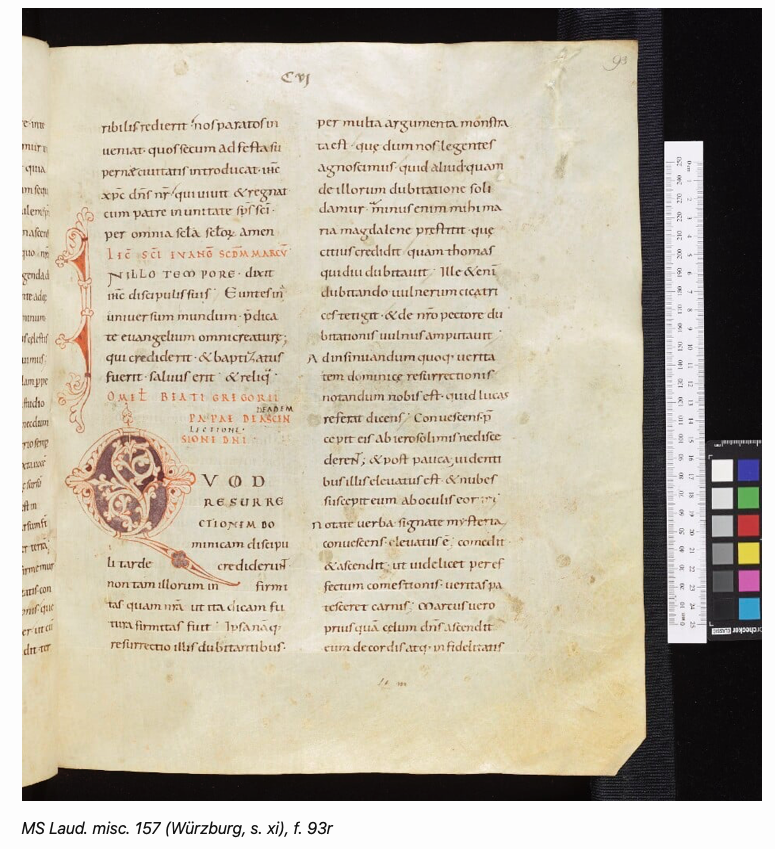 CVI
93
ribilis redierit nos paratos in
veniat quos secum ad festa su
pernae civitatis introducat ihc
xpc dns nr qui vivit & regnat
cum patre in unitate sps sci
per omnia scla scloꝝ amen
LEC SCI EVANG SCDM MARCV
IN ILLO TEMPORE dixit
ihc discipulis suis Euntes in
universum mundum pdica
te evangelium omni creature;
qui crediderit & baptizatus
fuerit saluus erit & reliq
OMEL BEATI GREGORII
DE EADEM
PAPAE DE ASCEN
LECTIONE
SIONE DNI
QVOD
RESURRE
CTIONEM DO
minicam discipu
li tarde crediderunt
non tam illorum in firmi
tas quam nra ut ita dicam fu
tura firmitas fuit Ipsa naq
resurrectio illis dubitantibus
per multa argumenta monstra
ta est que dum nos legentes
agnoscimus quid aliud quam
de illorum dubitatione soli
damur minus enim mihi ma
ria magdalene prestitit que
citius credidit quam thomas
qui diu dubitavit Ille & eni
dubitando vulnerum cicatri
ces tetigit & de nro pectore du
bitationis vulnus amputavit
Ad insinuandum quoq verita
tem dominice resurrectionis
notandum nobis est quid lucas
referat dicens Convescens p
cepit eis ab ierosolimis ne disce
derent; & post pauca videnti
bus illis elevatus est & nubes
suscepit eum ab oculis eorum
Notate verba signate mysteria
convescens elevatus ē comedit
& ascendit ut videlicet per ef
fectum comestionis veritas pa
tesceret carnis Marcus vero
priusquā celum dns ascendit
eum de cordis atq infidelitatis
MS Laud. misc. 157 (Würzburg, s. xi), f. 93r